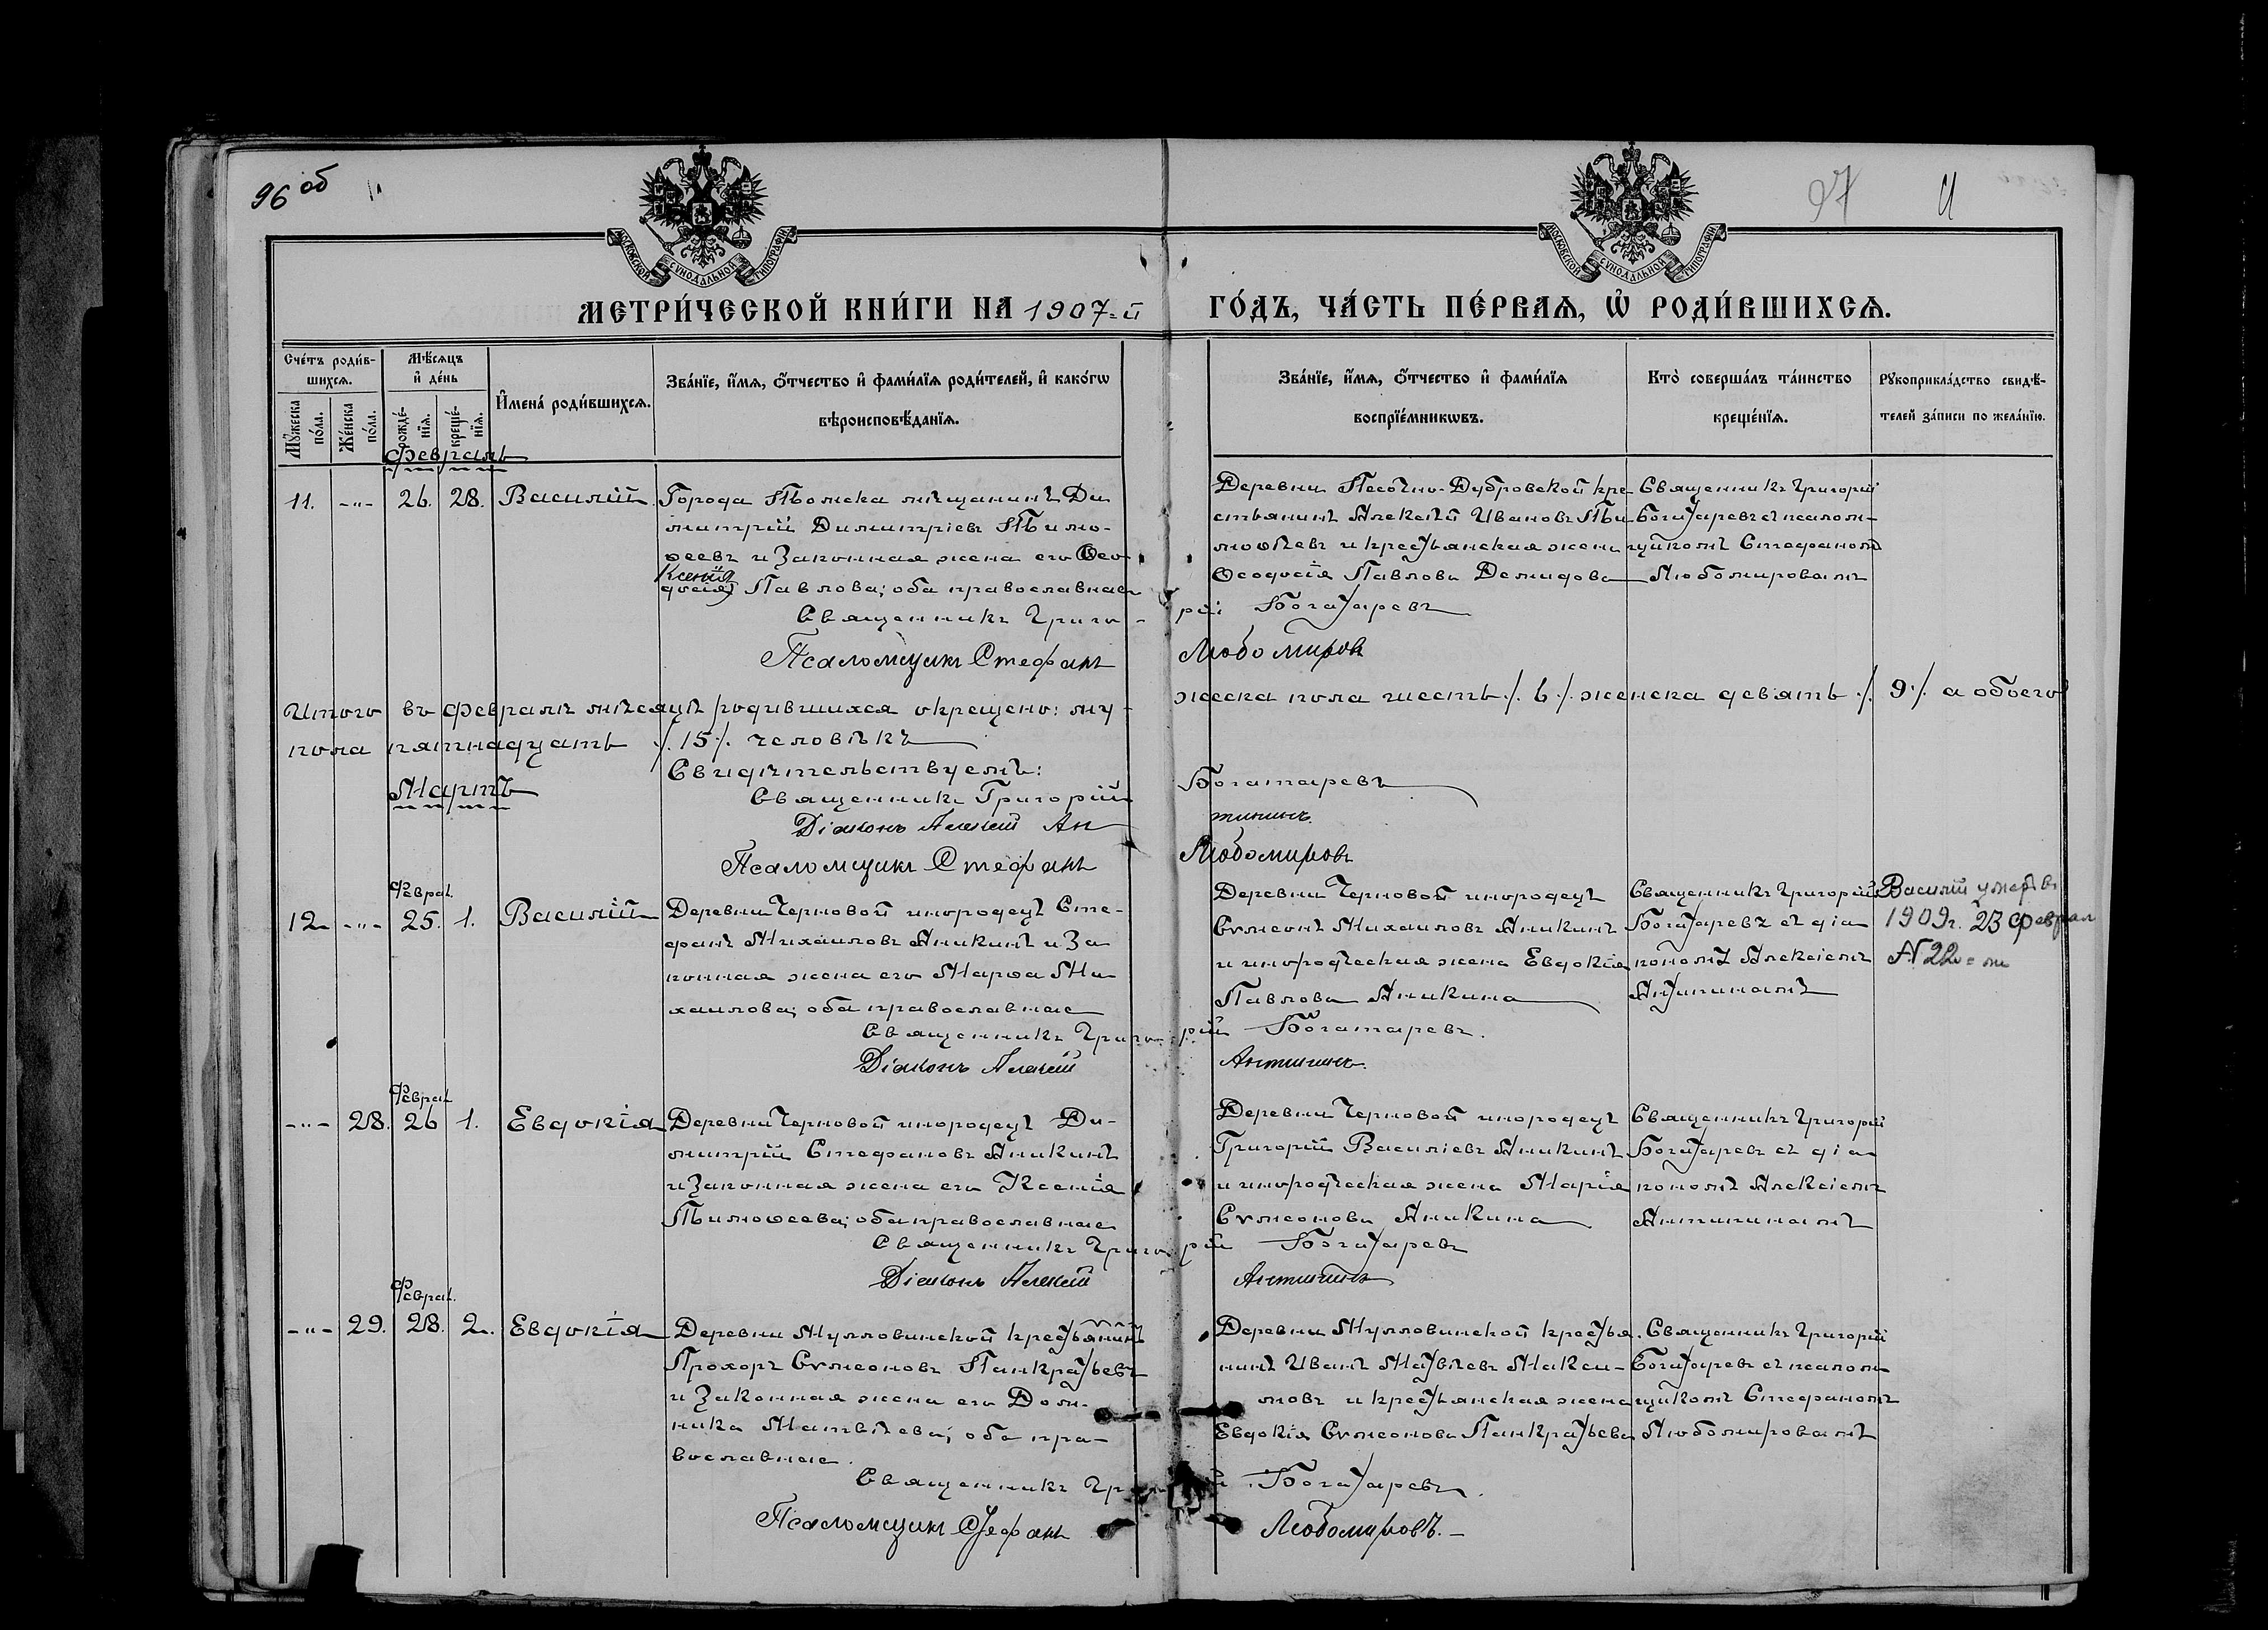 96 об
97
МОСКОВСКОЙ СУНОДАЛЬНОЙ ТИПОГРАФІИ
МОСКОВСКОЙ СУНОДАЛЬНОЙ ТИПОГРАФІИ
МЕТРИ́ЧЕСКОЙ КНИ́ГИ НА 1907-й ГО́ДЪ, ЧА́СТЬ ПЕ́РВАѦ, Ѡ҆ РОДИ́ВШИХСѦ.
Сче́тъ роди́в-
шихсѧ.
Мѣ́сѧцъ
и҆ де́нь
Мꙋ́жеска
по́ла.
Же́нска
по́ла.
рожде́-
нїѧ.
креще́-
нїѧ.
И҆мена́ роди́вшихсѧ.
Зва́нїе, и҆́мѧ, ѻ҆́тчество и҆ фами́лїѧ роди́телей, и҆ како́гѡ
вѣроисповѣ́данїѧ.
Зва́нїе, и҆́мѧ, ѻ҆́тчество и҆ фами́лїѧ
воспрїе́мникѡвъ.
Кто̀ соверша́лъ та́инство
креще́нїѧ.
Рꙋкоприкла́дство свидѣ́-
телей за́писи по жела́нїю.
Февраль
11. -"- 26. 28. Василій.
Города Томска мѣщанинъ Ди
митрій Димитріевъ Тимо-
ѳеевъ и законная жена его Ѳео
Ксенія
досія Павлова; оба православные
Деревни Песочно-Дубровской кре-
стьянинъ Алексѣй Ивановъ Ти-
моѳѣевъ и крестьянская жена
Ѳеодосія Павлова Демидова
Священникъ Григорій
Богатаревъ съ псалом-
щикомъ Стефаномъ
Любомировамъ
Священникъ Григо-рій Богатаревъ
Псаломщикъ Стефанъ Любомировъ
Итого въ Февралѣ мѣсяцѣ родившихся окрещено: му-жеска пола шесть ./. 6 ./. женска девять ./. 9 ./. а обоего
пола пятнадцать ./. 15 ./. человѣкъ
Свидѣтельствуемъ:
Мартъ
Священникъ Григорій Богатаревъ
Діаконъ Алексій Ан типинъ.
Псаломщикъ Стефанъ Любомировъ
Феврал.
12. -"- 25. 1. Василій
Деревни Черновой инородецъ Сте-
фанъ Михаиловъ Аникинъ и за
конная жена его Марѳа Ми
хаилова; оба православные
Деревни Черновой инородецъ
Сѵмеонъ Михаиловъ Аникинъ
и инородческая жена Евдокія
Павлова Аникина
Священникъ Григорій
Богатаревъ съ діа
кономъ Алексіемъ
Антипинамъ
Василій умеръ въ
1909г. 23 Феврал
№ 22-мъ
Священникъ Григо-рій Богатаревъ.
Діаконъ Алексій Антипинъ.
Феврал.
-"- 28. 26 1. Евдокія
Деревни Черновой инородецъ Ди-
митрій Стефановъ Аникинъ
и законная жена его Ксенія
Тимоѳеева; оба православные
Деревни Черновой инородецъ
Григорій Василіевъ Аникинъ
и инородческая жена Марія
Сѵмеонова Аникина
Священникъ Григорій
Богатаревъ съ діа
кономъ Алексіемъ
Антипинамъ
Священникъ Григо-рій Богатаревъ
Діаконъ Алексій Антипинъ
Феврал.
-"- 29. 28. 2. Евдокія
Деревни Мулловинской крестьянинъ
Прохоръ Сѵмеоновъ Панкратьевъ
и законная жена его Дом-
ника Матвѣева; оба пра-
вославные.
Деревни Мулловинской крестья-
нинъ Иванъ Матвѣевъ Макси-
мовъ и крестьянская жена
Евдокія Сѵмеонова Панкратьева
Священникъ Григорій
Богатаревъ съ псалом
щикомъ Стефаномъ
Любомировамъ
Священникъ Богатаревъ.
Псаломщикъ Стефанъ Любомировъ.-